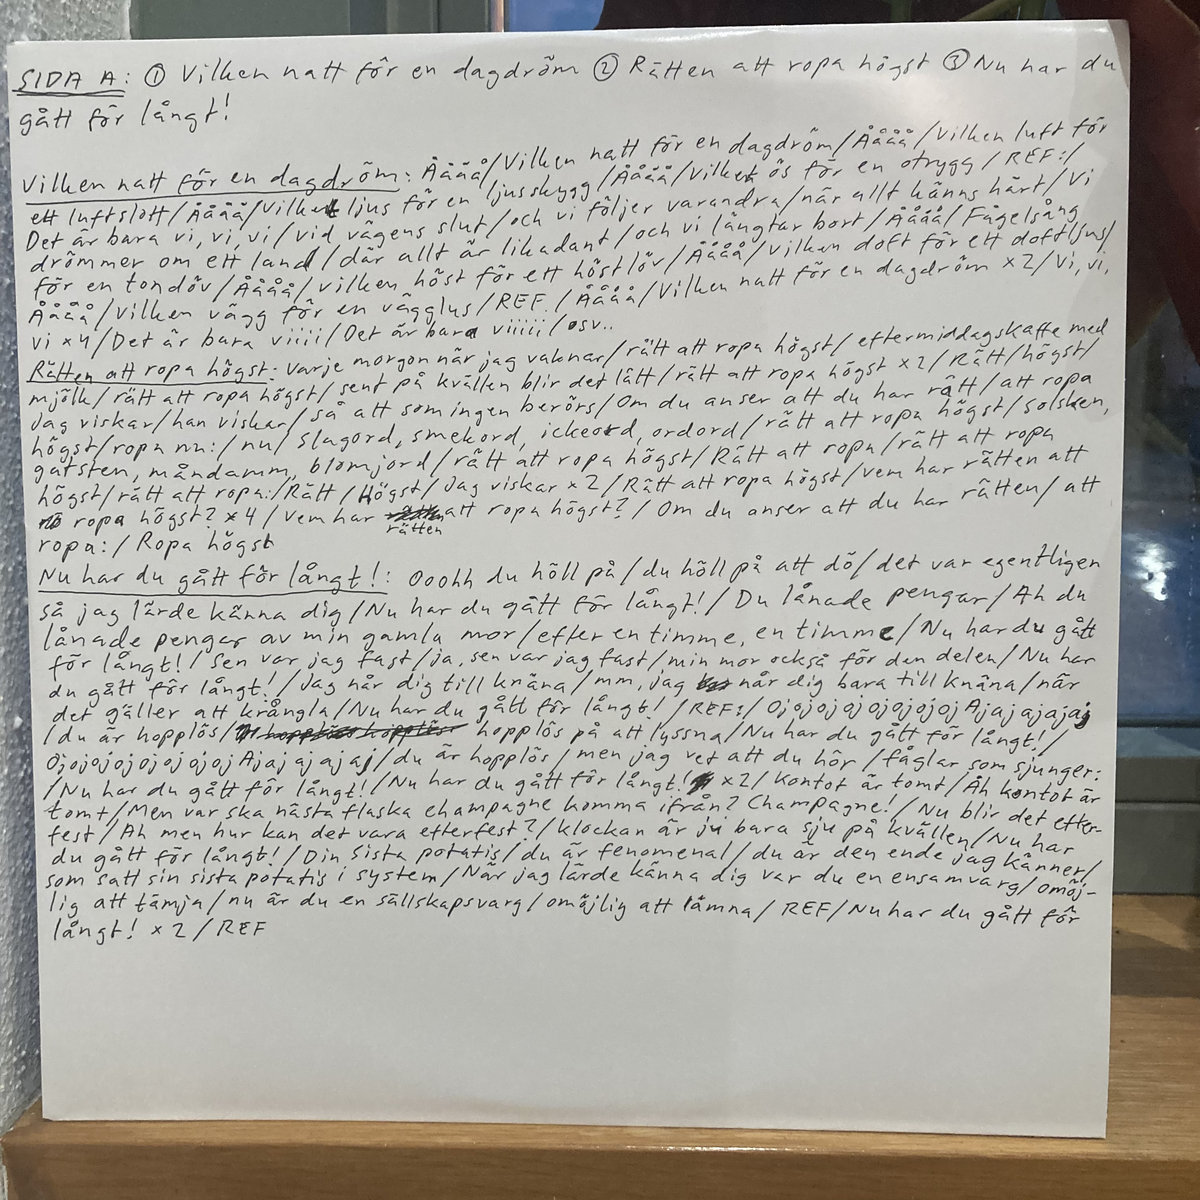 SIDA A: ① Vilken natt för en dagdröm ② Rätten att ropa högst ③ Nu har du
gått för långt!
Vilken natt för en dagdröm: Åååå/Vilken natt för en dagdröm/Åååå/Vilken luft för
ett luftslott/Åååå/Vilket ljus för en ljusskygg/Åååå/Vilket ös för en otrygg/REF:/
Det är bara vi, vi, vi/vid vägens slut/och vi följer varandra/när allt känns hårt/Vi
drömmer om ett land/där allt är likadant/och vi längtar bort/Åååå/Fågelsång
för en tondöv/Åååå/vilken höst för ett höstlöv/Åååå/Vilken doft för ett doftljus/
Åååå/Vilken vägg för en vägglus/REF/Åååå/Vilken natt för en dagdröm x2/Vi, vi,
vi x4/Det är bara viiii/Det är bara viiiii/osv..
Rätten att ropa högst: Varje morgon när jag vaknar/rätt att ropa högst/eftermiddagskaffe med
mjölk/rätt att ropa högst/sent på kvällen blir det lätt/rätt att ropa högst x2/Rätt/högst/
Jag viskar/han viskar/så att som ingen berörs/Om du anser att du har rätt/att ropa
högst/ropa nu:/nu/slagord, smekord, ickeord, ordord/rätt att ropa högst/solsken,
gatsten, måndamm, blomjord/rätt att ropa högst/Rätt att ropa/rätt att ropa
högst/rätt att ropa:/Rätt/Högst/Jag viskar x2/Rätt att ropa högst/vem har rätten att
ropa högst? x4/Vem har rätten att ropa högst?/Om du anser att du har rätten/att
ropa:/Ropa högst
Nu har du gått för långt!: Ooohh du höll på/du höll på att dö/det var egentligen
så jag lärde känna dig/Nu har du gått för långt!/Du lånade pengar/Ah du
lånade pengar av min gamla mor/efter en timme, en timme/Nu har du gått
för långt!/Sen var jag fast/ja, sen var jag fast/min mor också för den delen/Nu har
du gått för långt!/Jag når dig till knäna/mm, jag når dig bara till knäna/när
det gäller att krångla/Nu har du gått för långt!/REF:/Ojojojojojojojoj Ajajajajajaj
/du är hopplös/hopplös på att lyssna/Nu har du gått för långt!/
Ojojojojojojojoj Ajajajajaj/du är hopplös/men jag vet att du hör/fåglar som sjunger:
/Nu har du gått för långt!/Nu har du gått för långt! x2/Kontot är tomt/Åh kontot är
tomt/Men var ska nästa flaska champagne komma ifrån? Champagne!/Nu blir det efter-
fest/Ah men hur kan det vara efterfest?/klockan är ju bara sju på kvällen/Nu har
du gått för långt!/Din sista potatis/du är fenomenal/du är den ende jag känner/
som satt sin sista potatis i system/När jag lärde känna dig var du en ensamvarg/omöj-
lig att tämja/nu är du en sällskapsvarg/omöjlig att lämna/REF/Nu har du gått för
långt! x2/REF